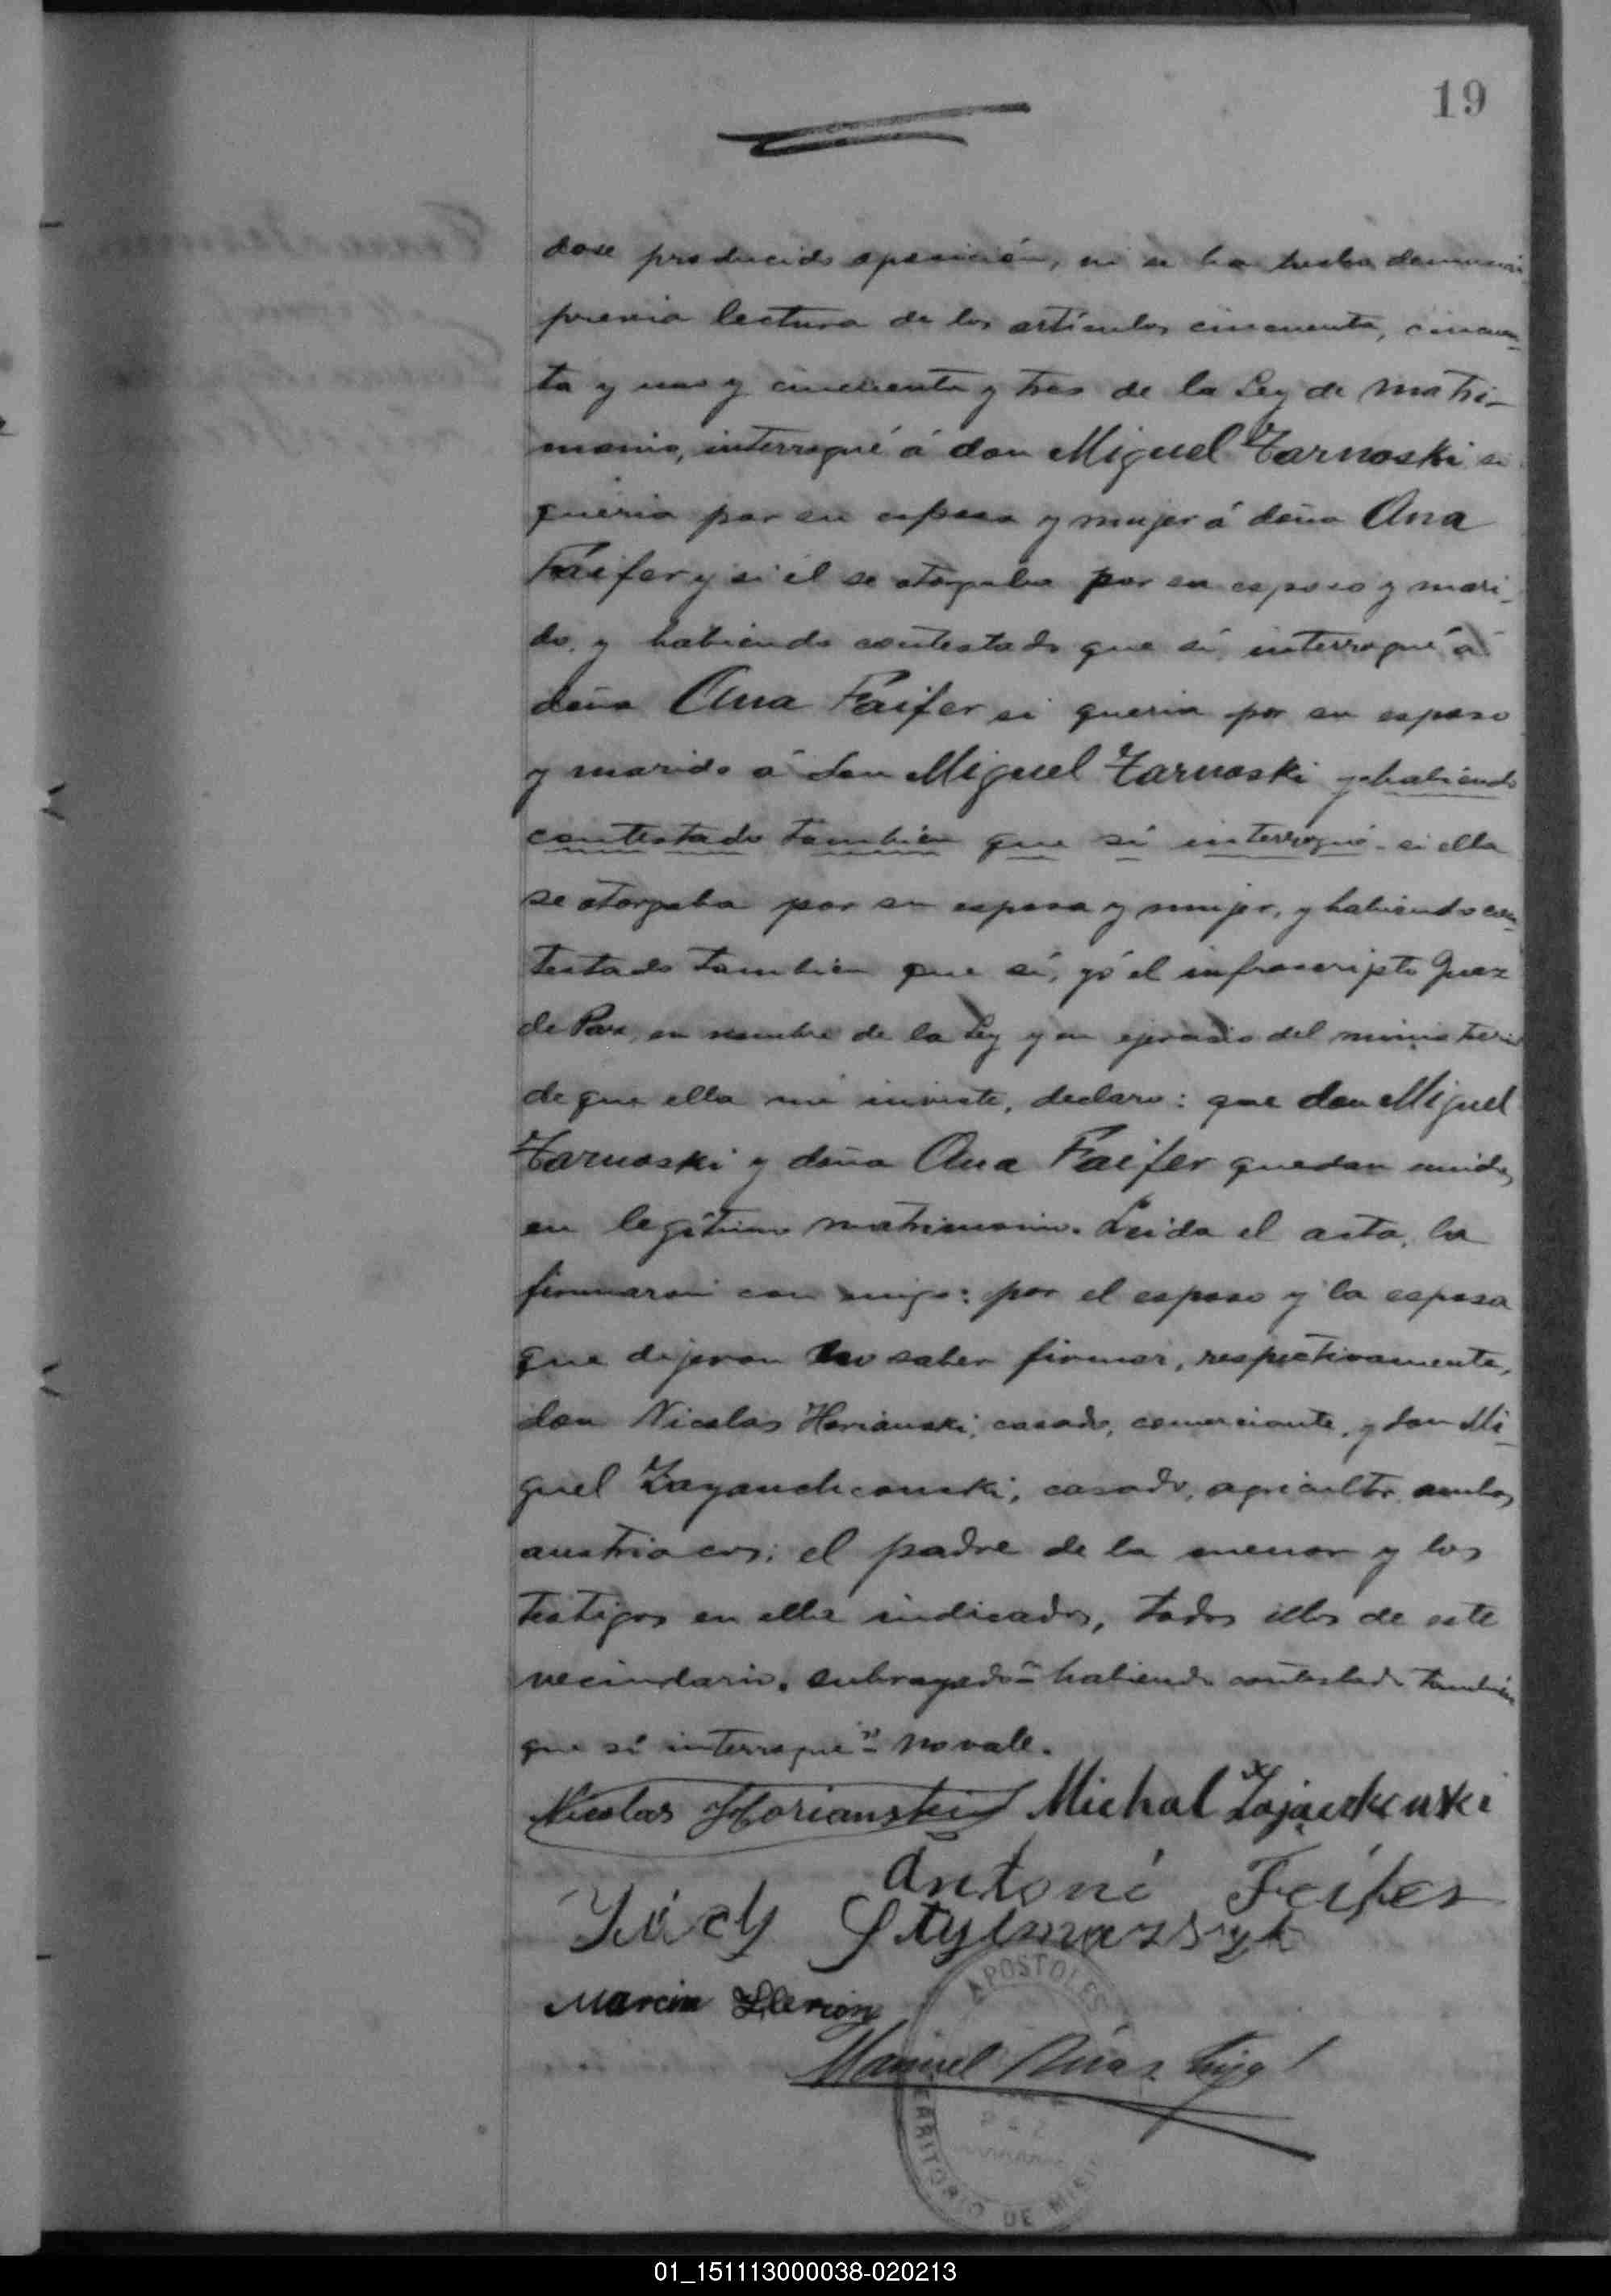 19
dose producido oposición, ni se ha hecho denuncia
previa lectura de los artículos cincuenta, cincuen-
ta y uno y cincuenta y tres de la Ley de matri-
monio, interrogué á don Miguel Tarnoski si
queria por su esposa y mujer á doña Ana
Faifer y si él se otorgaba por su esposo y mari-
do, y habiendo contestado que sí, interrogué á
doña Ana Faifer si queria por su esposo
y marido a don Miguel Tarnoski y habiendo
contestado también que sí interrogué si ella
se otorgaba por su esposa y mujer, y habiendo con-
testado tambien que sí, yó el infrascripto Juez
de Paz, en nombre de la Ley y en ejercicio del ministerio
de que ella me inviste, declaro: que don Miguel
Tarnoski y doña Ana Faifer quedan unidos
en legítimo matrimonio. Leida el acta, la
firmaron con migo: por el esposo y la esposa
que dijeron no saber firmar, respectivamente,
don Nicolas Horianski, casado, comerciante, y don Mi-
guel Zayanchcouski, casado, agricultor, ambos
austriacos; el padre de la menor y los
testigos en ella indicados, todos ellos de este
vecindario. subrayado = habiendo contestado tambien
que sí interrogué = no vale.
Nicolas Horianski Michal
Antoni Feifer
Marcin
Manuel
APOSTOLES
TERRITORIO DE MISI
01_151113000038-020213